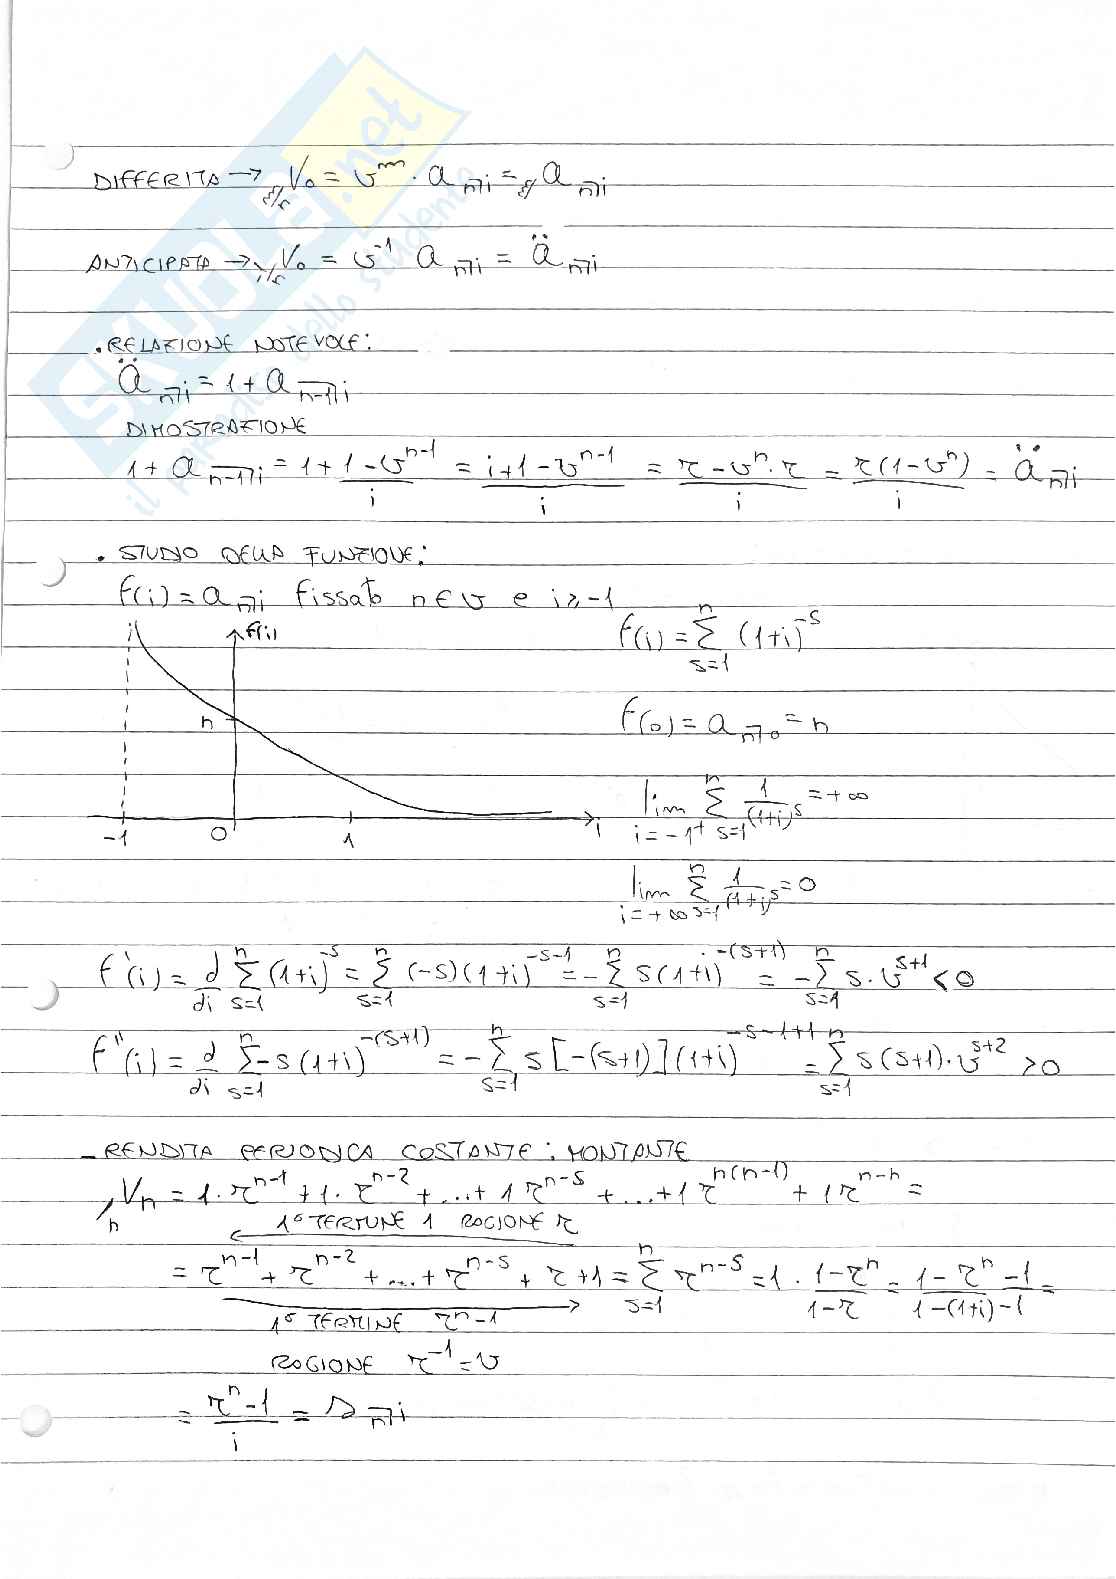 DIFFERITA → g/c V₀ = v^m · a n⌉i = g/ a n⌉i
ANTICIPATA → 1/c V₀ = v^-1 a n⌉i = ä n⌉i
. RELAZIONE NOTEVOLE:
ä n⌉i = 1 + a n-1⌉i
DIMOSTRAZIONE
1 + a n-1⌉i = 1 + (1 - v^n-1)/i = (i + 1 - v^n-1)/i = (r - v^n · r)/i = r(1 - v^n)/i = ä n⌉i
. STUDIO DELLA FUNZIONE:
f(i) = a n⌉i fissato n ∈ v e i ≥ -1
f(i) = Σ s=1 n (1+i)^-s
f(i)
n
f(0) = a n⌉0 = n
-1 0 1 i
lim i = -1⁺ Σ s=1 n 1/(1+i)^s = +∞
lim i = +∞ Σ s=1 n 1/(1+i)^s = 0
f'(i) = d/di Σ s=1 n (1+i)^-s = Σ s=1 n (-s)(1+i)^-s-1 = - Σ s=1 n s(1+i)^-(s+1) = - Σ s=1 n s · v^s+1 < 0
f''(i) = d/di Σ s=1 n -s(1+i)^-(s+1) = - Σ s=1 n s[-(s+1)](1+i)^-s-1+1 = Σ s=1 n s(s+1) · v^s+2 > 0
- RENDITA PERIODICA COSTANTE: MONTANTE
/n V n = 1 · r^n-1 + 1 · r^n-2 + ... + 1 r^n-s + ... + 1 r^n(n-1) + 1 r^n-n =
1° TERMINE 1 RAGIONE r
= r^n-1 + r^n-2 + ... + r^n-s + r + 1 = Σ s=1 n r^n-s = 1 · (1 - r^n)/(1 - r) = (1 - r^n -1)/(1-(1+i) -1) =
1° TERMINE r^n-1
RAGIONE r^-1 = v
= (r^n - 1)/i = s n⌉i
SKUOLA.net
il paradiso dello studente